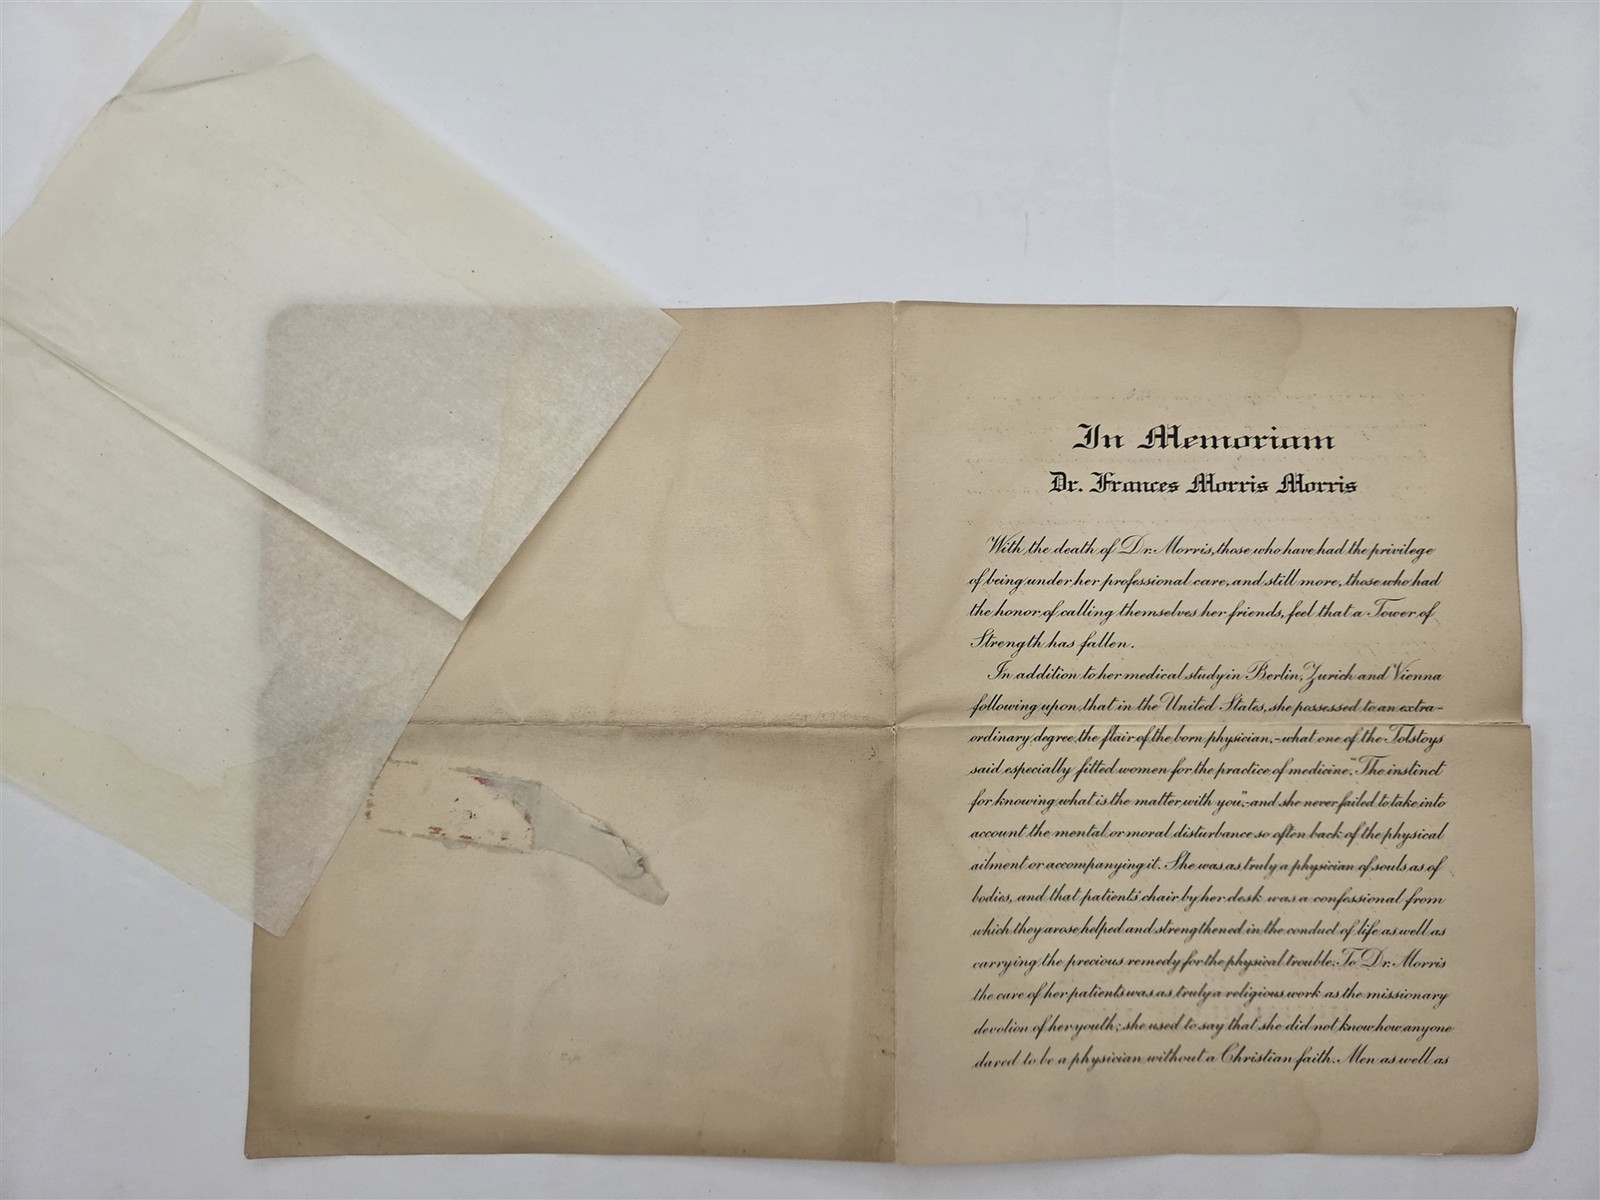 In Memoriam
Dr. Frances Morris Morris
With the death of Dr. Morris, those who have had the privilege
of being under her professional care, and still more, those who had
the honor of calling themselves her friends, feel that a Tower of
Strength has fallen.
In addition to her medical study in Berlin, Zurich and Vienna
following upon that in the United States, she possessed to an extra-
ordinary degree the flair of the born physician,-what one of the Tolstoys
said especially fitted women for the practice of medicine:"The instinct
for knowing what is the matter with you",-and she never failed to take into
account the mental or moral disturbance so often back of the physical
ailment or accompanying it. She was as truly a physician of souls as of
bodies, and that patient's chair by her desk was a confessional from
which they arose helped and strengthened in the conduct of life as well as
carrying the precious remedy for the physical trouble. To Dr. Morris
the care of her patients was as truly a religious work as the missionary
devotion of her youth; she used to say that she did not know how anyone
dared to be a physician without a Christian faith. Men as well as